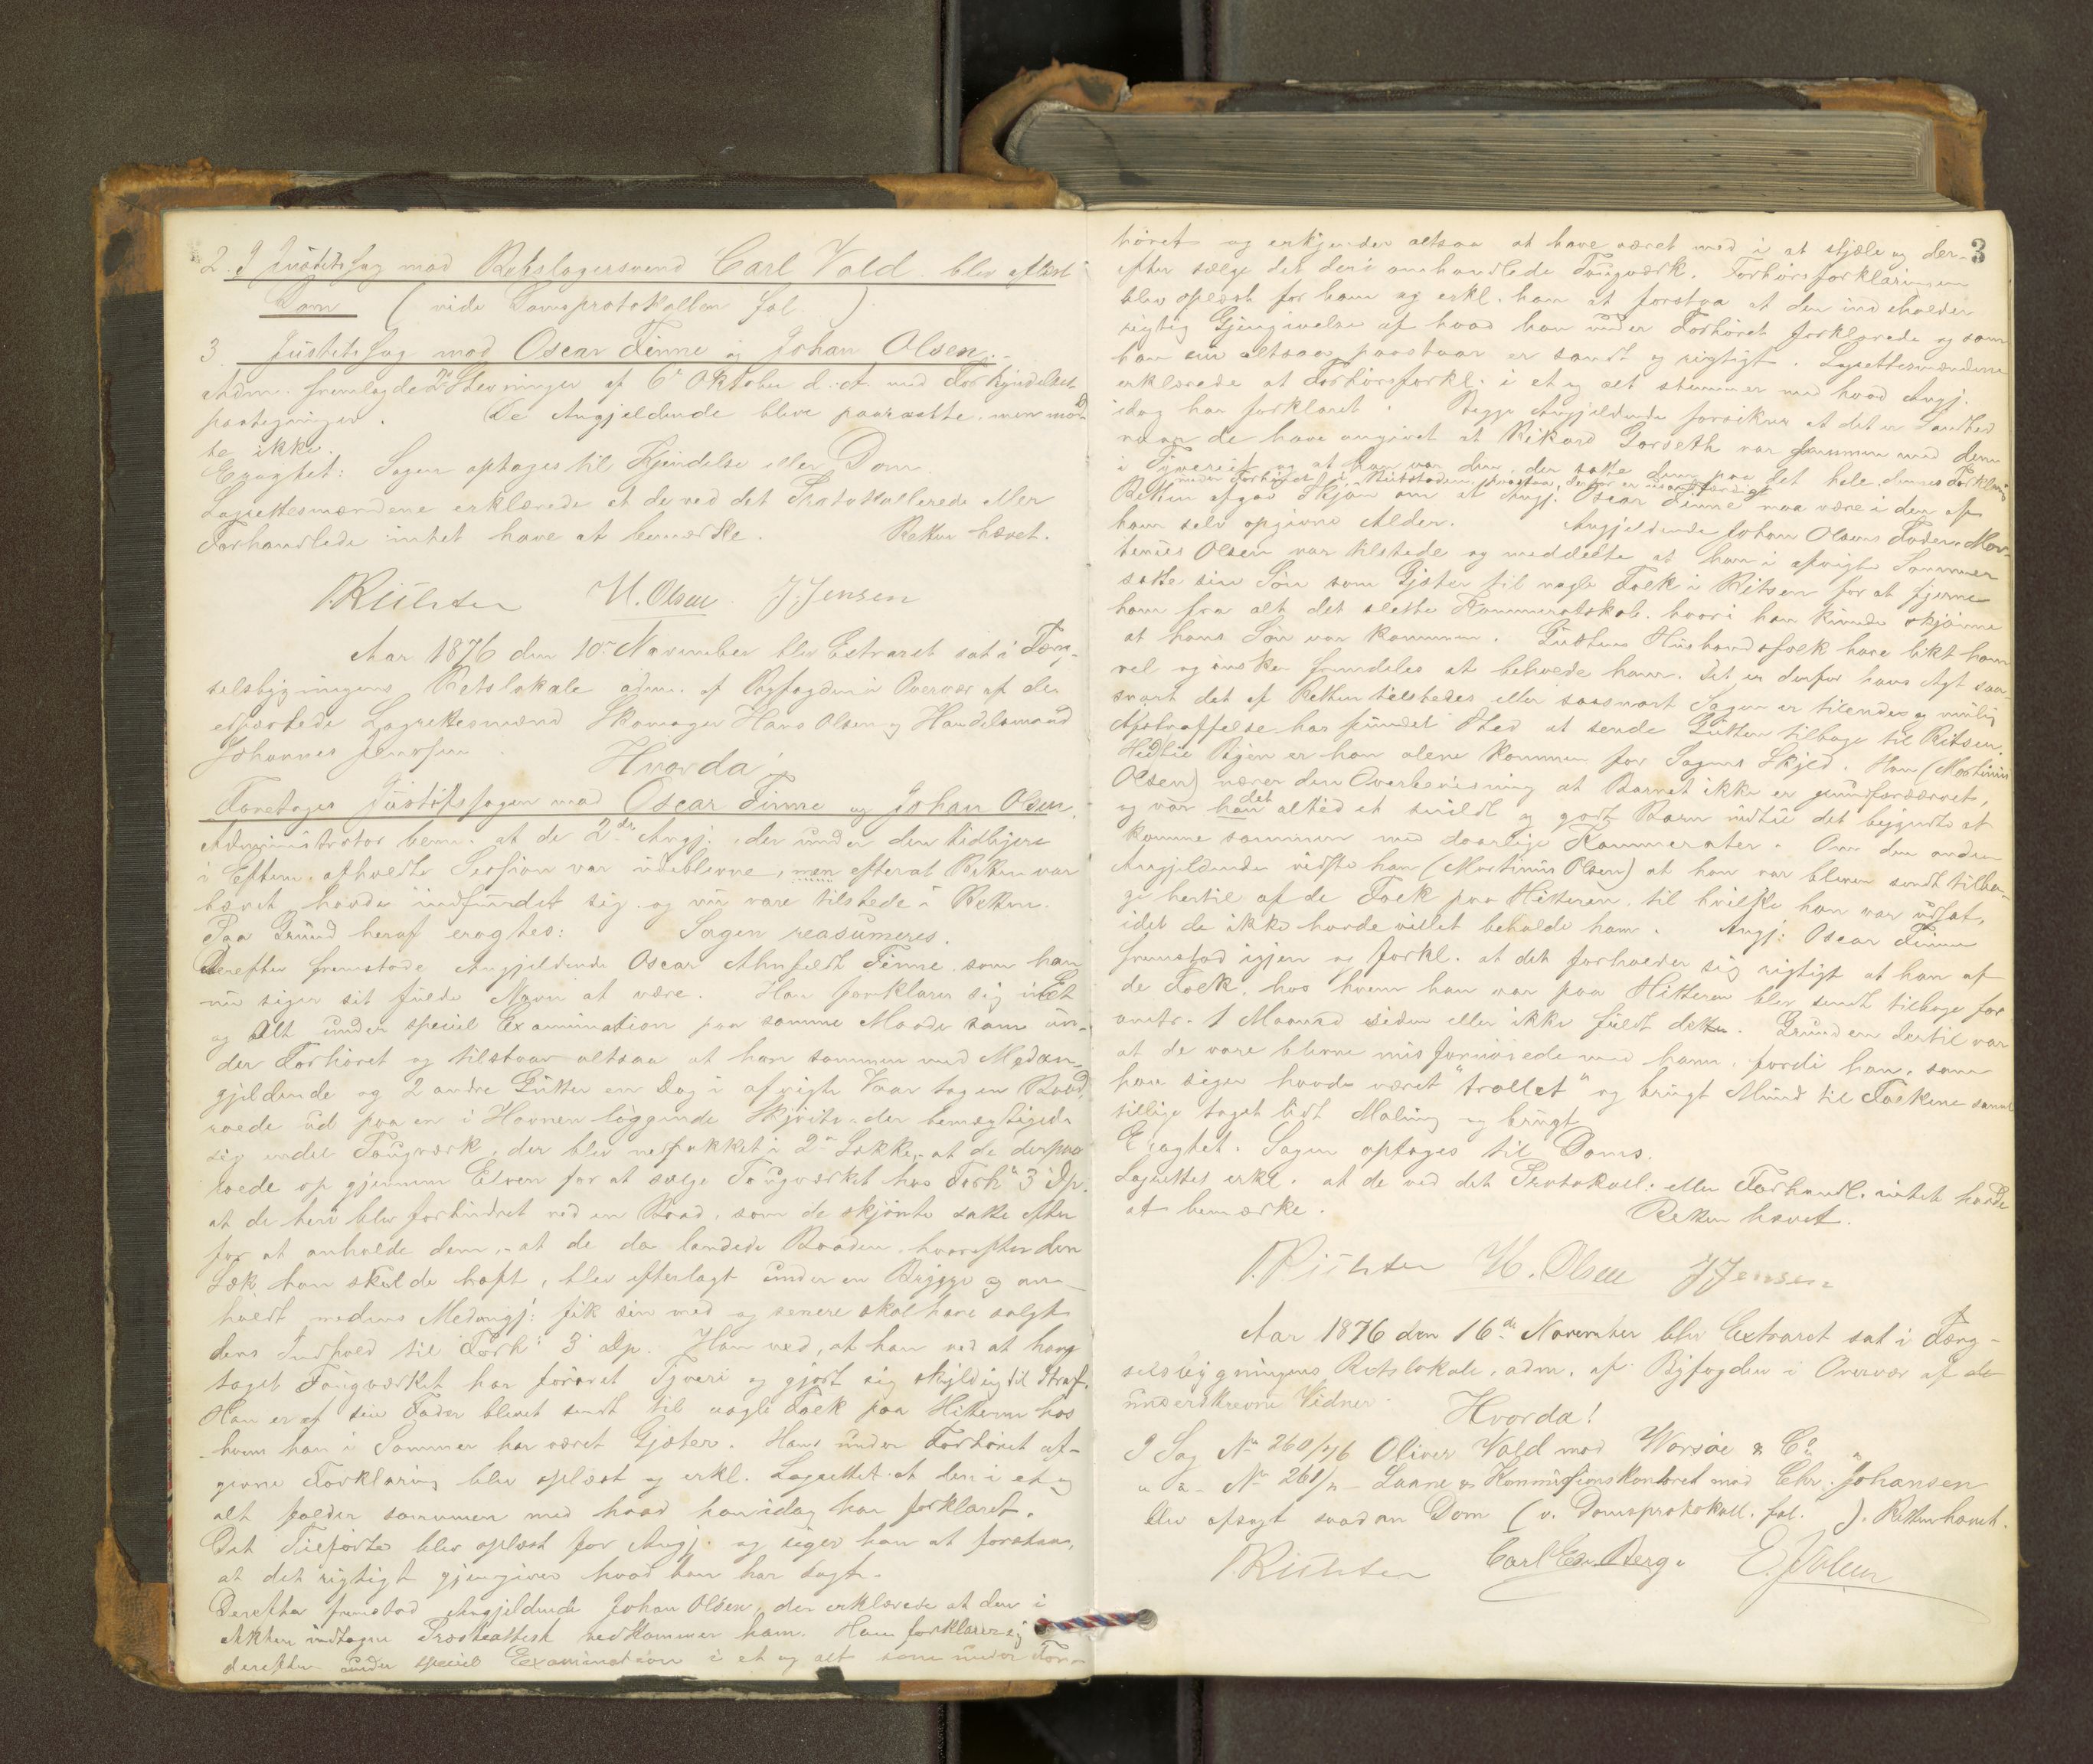 2. I Justitssag mod Rebslagersvend Carl Vold blev afsagt
Dom (vide Domsprotokollen fol. )
3. Justitssag mod Oscar Finne og Johan Olsen.
Adm. fremlagde 2de Stevninger af 6te Oktober d. A. med Forkyndelses
paategninger. De Angjeldende bleve paaraabte, men mød-
te ikke.
Eragtet: Sagen optages til Kjendelse eller Dom
Lagrettesmændene erklærede at de ved det Protokollerede eller
Forhandlede intet have at bemærke. Retten hævet.
Richter H. Olsen J. Jensen
Aar 1876 den 10de November blev Extraret sat i Fæng-
selsbygningens Retslokale adm. af Byfogden i Overvær af de
edfæstede Lagrettesmænd Skomager Hans Olsen og Handelsmand
Johannes Jensen.
Hvorda!
Foretoges Justitssagen mod Oscar Finne og Johan Olsen.
Administrator bem. at de 2de Angj. der under den tidligere
i Efterm. afholdte Session var udeblevne, men efterat Retten var
hævet havde indfundet sig og nu vare tilstede i Retten.
Paa Grund heraf eragtes: Sagen reasumeres.
Derefter fremstod Angjeldende Oscar Ahnfeldt Finne som han
nu siger sit fulde Navn at være. Han forklarer sig i Et
og Alt under speciel Examination paa samme Maade som un-
der Forhøret og tilstaar altsaa at han sammen med Medan-
gjeldende og 2 andre Gutter en Dag i afvigte Vaar tog en Baad,
roede ud paa en i Havnen liggende Skjøite, der bemægtigede
sig endel Tougværk, der blev nedpakket i 2de Sække, at de derpaa
roede op gjennem Elven for at sælge Tougværket hos Forh. 3 Dp.
at de heri blev forhindret ved en Baad, som de skjønte satte efter
for at anholde dem, at de da landede Baaden, hvorefter den
Sæk, han skulde havt, blev efterlagt under en Brygge og an-
holdt medens Medangj. fik sin med og senere skal have solgt
dens Indhold til Forh. 3 Dp. Han ved, at han ved at have
taget Tougværket har forøvet Tyveri og gjort sig skyldig til Straf.
Han er af sin Fader blevet sendt til nogle Folk paa Hitteren hos
hvem han i Sommer har været Gjæter. Hans under Forhøret af-
givne Forklaring blev oplæst og erkl. Lagrettet at den i et og
alt falder sammen med hvad han idag har forklaret.
Det Tilførte blev oplæst for Angj. og siger han at forstaa,
at det rigtigt gjengiver hvad han har sagt.
Derefter fremstod Angjeldende Johan Olsen, der erklærede at den i
Akten indtagne Præsteattest vedkommer ham. Han forklarer sig
derefter under speciel Examination i et og alt som under For-
3
høret og erkjender altsaa at have været med i at stjæle og der-
efter sælge det deri omhandlede Tougværk. Forhørsforklaringen
blev oplæst for ham og erkl. han at forstaa at den indeholder
rigtig Gjengivelse af hvad han under Forhøret forklarede og som
han nu altsaa paastaar er sandt og rigtigt. Lagrettesmændene
erklærede at Forhørsforkl. i et og alt stemmer med hvad Angj.
idag har forklaret. Begge Angjeldende forsikrer at det er Sandhed
naar de have angivet at Rikard Garseth var sammen med dem
i Tyveriet og at han var den, der satte dem paa det hele, dennes Forklaring
under Forhøret i Rubstaden
Retten afgav Skjøn om at Angj. Oscar Finne maa være i den af
ham selv opgivne Alder. Angjeldende Johan Olsens Fader Mor-
tinus Olsen var tilstede og meddelte at han i afvigte Sommer
satte sin Søn som Gjæter til nogle Folk i Ritsen for at fjerne
ham fra alt det slette Kammeratskab, hvori han kunde skjønne
at hans Søn var kommen. Guttens Husbondsfolk have likt ham
vel og ønsker fremdeles at beholde ham. Det er derfor hans Agt saa-
snart det af Retten tilstedes eller saasnart Sagen er tilende og mulig
Afstraffelse har fundet Sted at sende Gutten tilbage til Ritsen.
Hid til Byen er han alene kommen for Sagens Skyld. Han (Mortinus
Olsen) nærer den Overbevisning at Barnet ikke er grundfordærvet,
og var det altid et snildt og godt Barn indtil det begyndte at
komme sammen med daarlige Kammerater. Om den anden
Angjeldende vidste han (Mortinus Olsen) at han var bleven sendt tilba-
ge hertil af de Folk paa Hitteren, til hvilke han var udsat,
idet de ikke havde villet beholde ham. Angj. Oscar Finne
fremstod igjen og forkl. at det forholder sig rigtigt at han af
de Folk, hos hvem han var paa Hitteren blev sendt tilbage for
omtr. 1 Maaned siden eller ikke fuldt dette. Grunden dertil var
at de vare blevne misfornøiede med ham, fordi han, som
han siger havde været "trollet" og brugt Mund til Folkene samt
tillige taget lidt Maling og brugt.
Eragtet. Sagen optages til Doms.
Lagrettet erkl. at de ved det Protokoll. eller Forhandl. intet havde
at bemærke. Retten hævet.
Richter H. Olsen J Jensen
Aar 1876 den 16de November blev Extraret sat i Fæng-
selsbygningens Retslokale, adm. af Byfogden i Overvær af de
underskrevne Vidner.
Hvorda!
I Sag No 260/76 Oliver Vold mod Worsøe & Co
" " - No 261/" - Laane & Kommissionskontoret mod Chr. Johansen
blev afsagt saadan Dom (v. Domsprotokoll. fol. ). Retten hævet.
Richter Carl Ed. Berg. E. Solem